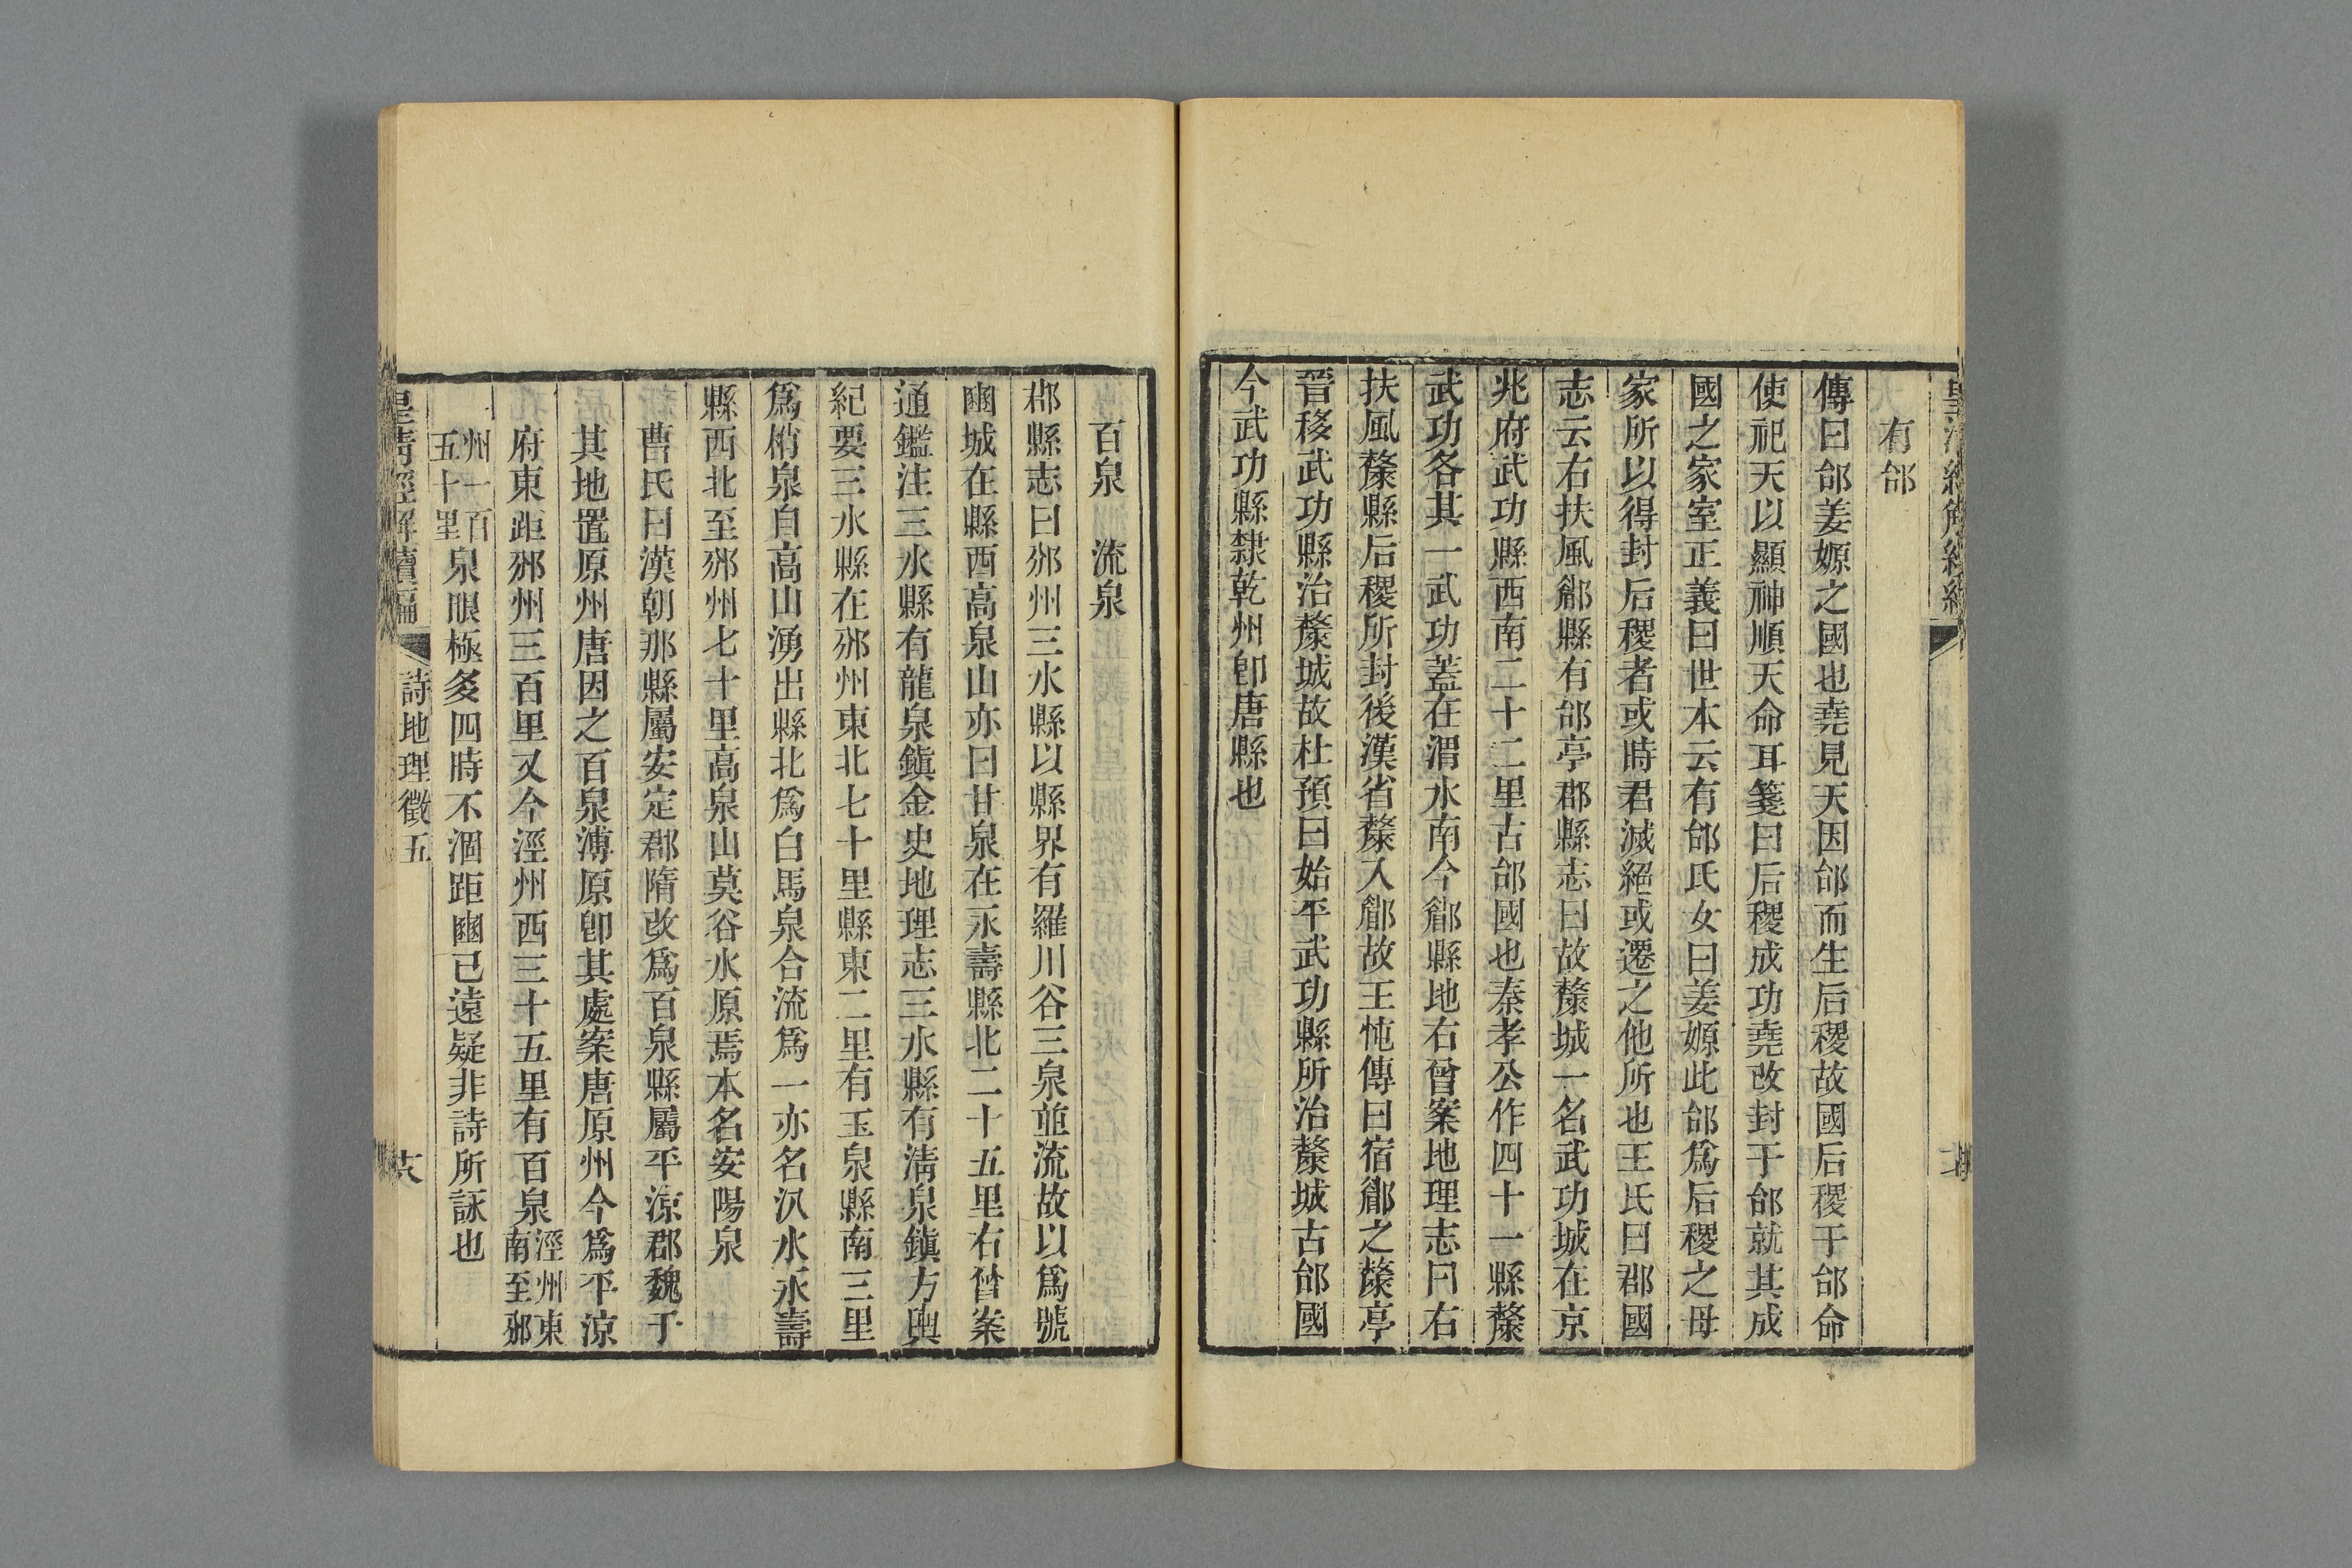 有邰
傳曰邰姜嫄之國也堯見天因邰而生后稷故國后稷于邰命
使祀天以顯神順天命耳箋曰后稷成功堯改封于邰就其成
國之家室正義曰世本云有邰氏女曰姜嫄此邰爲后稷之母
家所以得封后稷者或時君滅絕或遷之他所也王氏曰郡國
志云右扶風郿縣有邰亭郡縣志曰故斄城一名武功城在京
兆府武功縣西南二十二里古邰國也秦孝公作四十一縣斄
武功各其一武功蓋在渭水南今郿縣地右曾案地理志曰右
扶風斄縣后稷所封後漢省斄入郿故王忳傳曰宿郿之斄亭
晉移武功縣治斄城故杜預曰始平武功縣所治斄城古邰國
今武功縣隸乾州卽唐縣也
百泉　流泉
郡縣志曰邠州三水縣以縣界有羅川谷三泉並流故以爲號
豳城在縣西高泉山亦曰甘泉在永壽縣北二十五里右曾案
通鑑注三水縣有龍泉鎭金史地理志三水縣有淸泉鎭方輿
紀要三水縣在邠州東北七十里縣東二里有玉泉縣南三里
爲梢泉自高山湧出縣北爲白馬泉合流爲一亦名汃水永壽
縣西北至邠州七十里高泉山莫谷水原焉本名安陽泉
曹氏曰漢朝那縣屬安定郡隋改爲百泉縣屬平涼郡魏于
其地置原州唐因之百泉溥原卽其處案唐原州今爲平涼
府東距邠州三百里又今涇州西三十五里有百泉涇州東南至邠
州一百五十里泉眼極多四時不涸距豳已遠疑非詩所詠也
皇淸經解續編　詩地理徵五